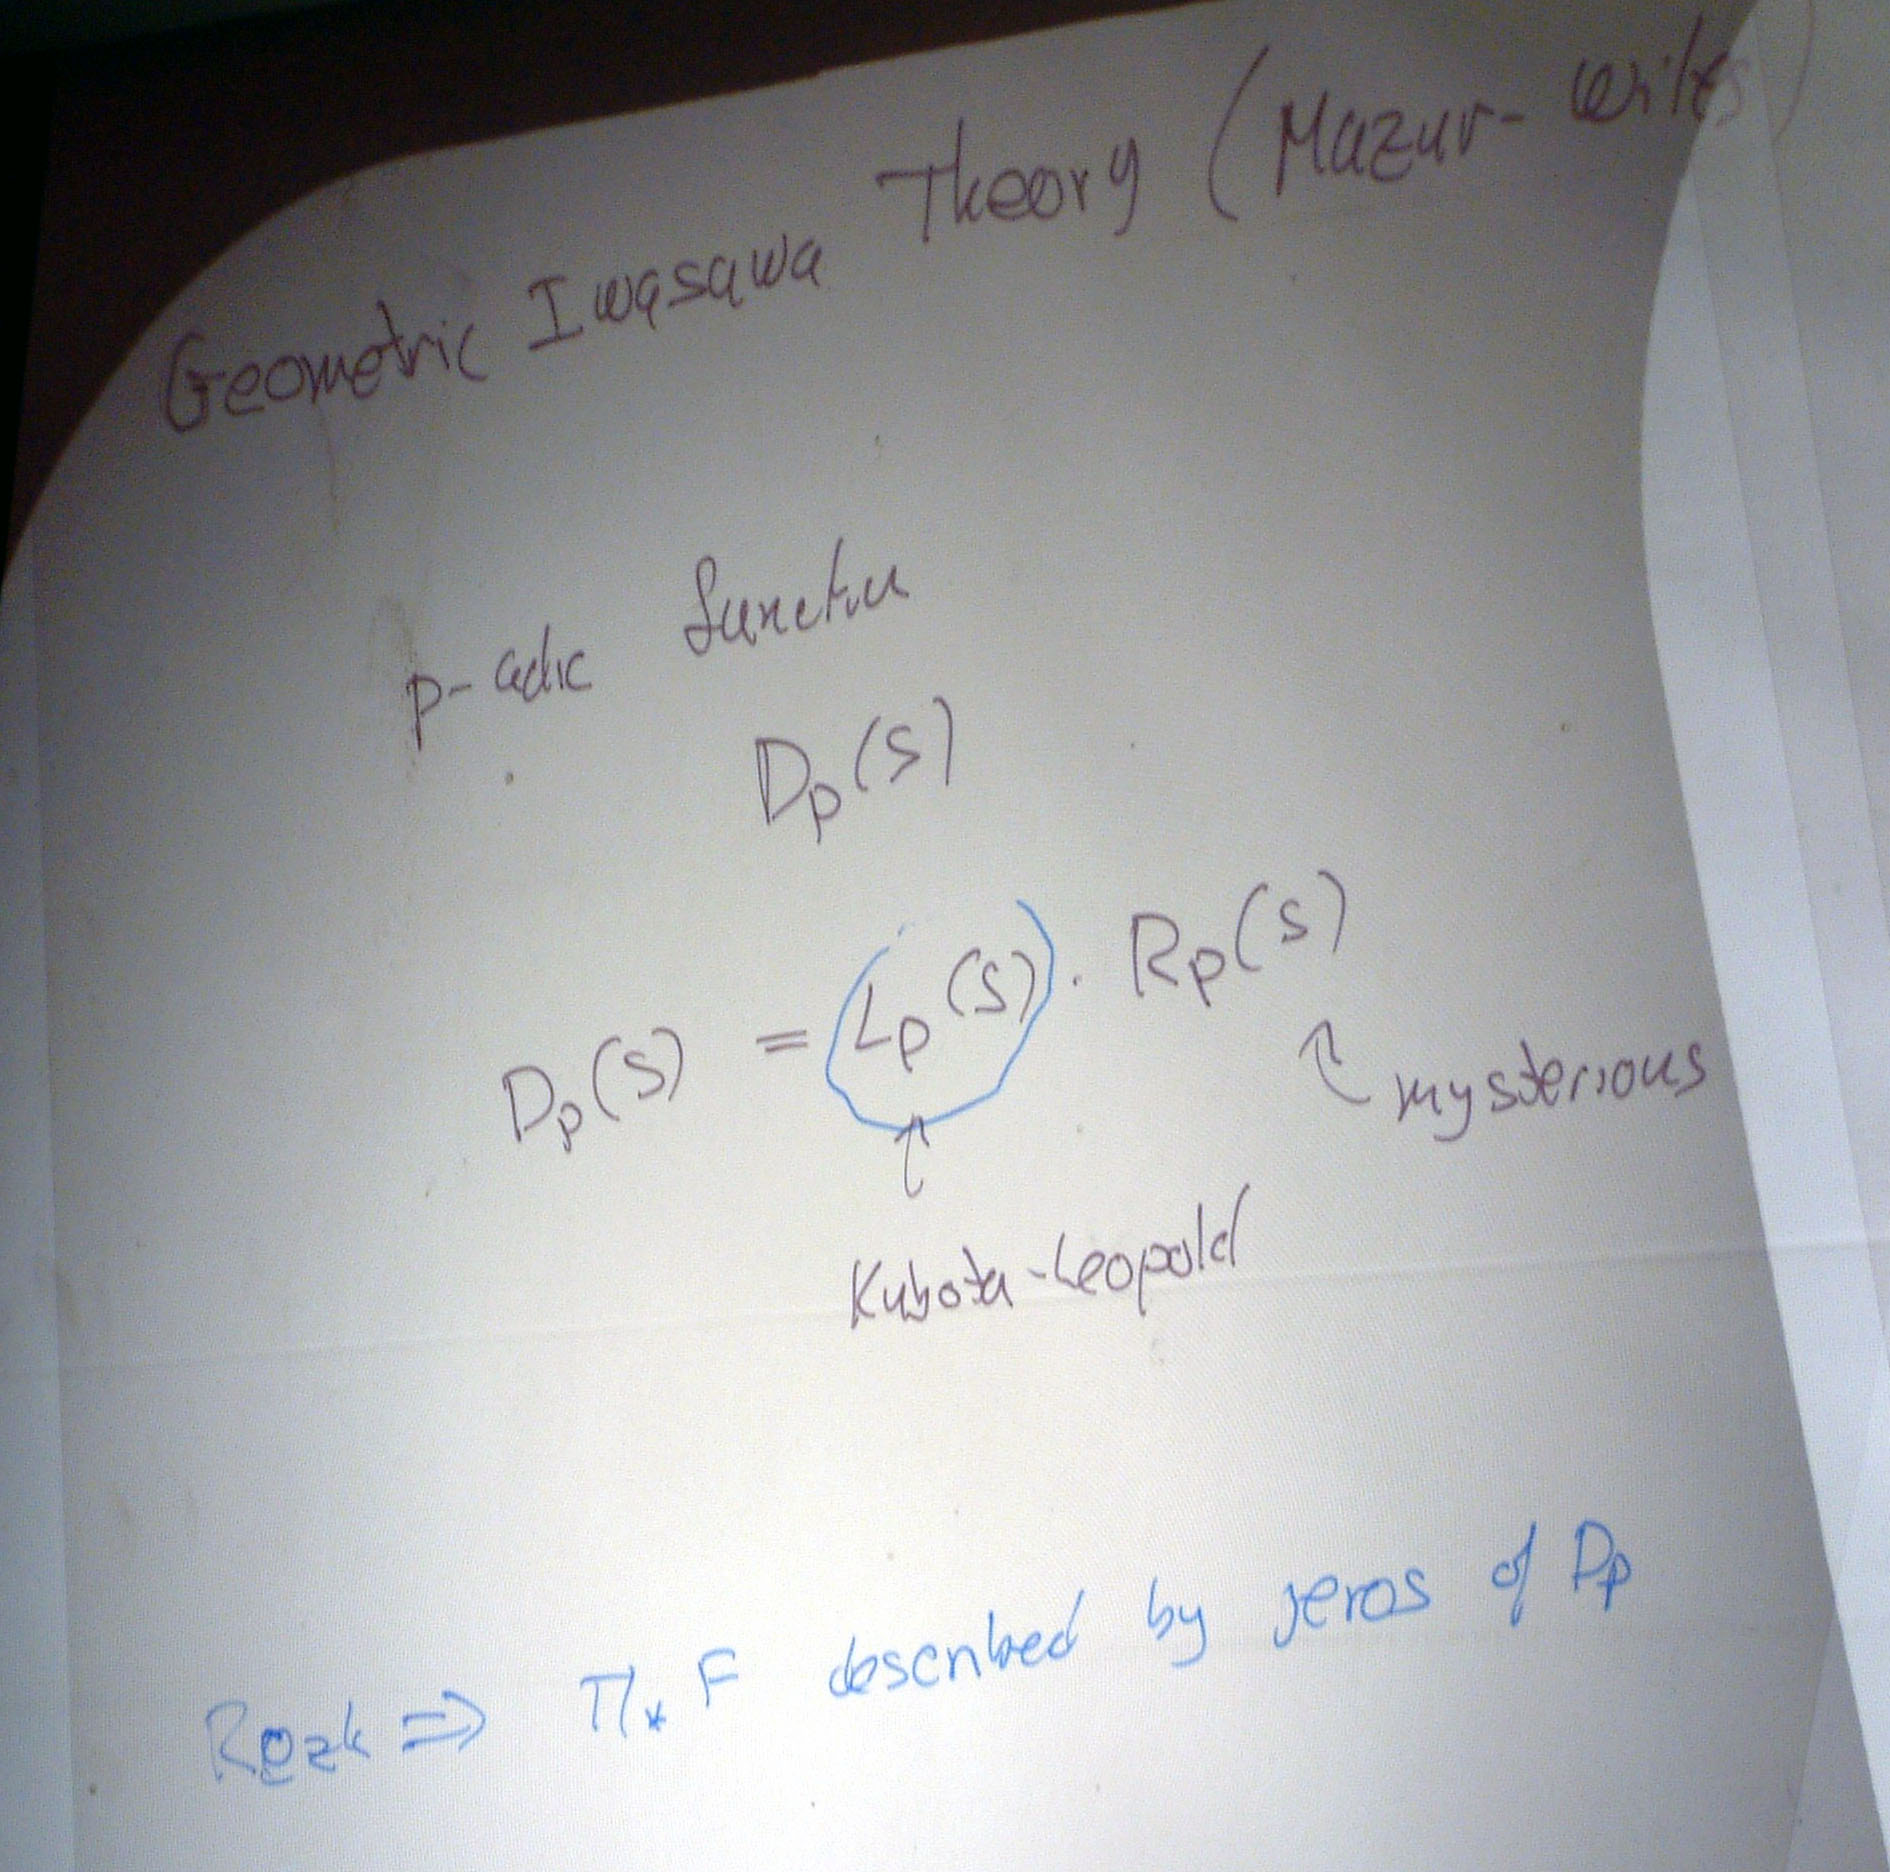 Geometric Iwasawa Theory (Mazur-Wiles)
p-adic function
Dp(s)
Dp(s) = Lp(s) · Rp(s)
↑ mysterious
↑
Kubota-Leopold
Rezk ⇒ π* F described by zeros of Dp